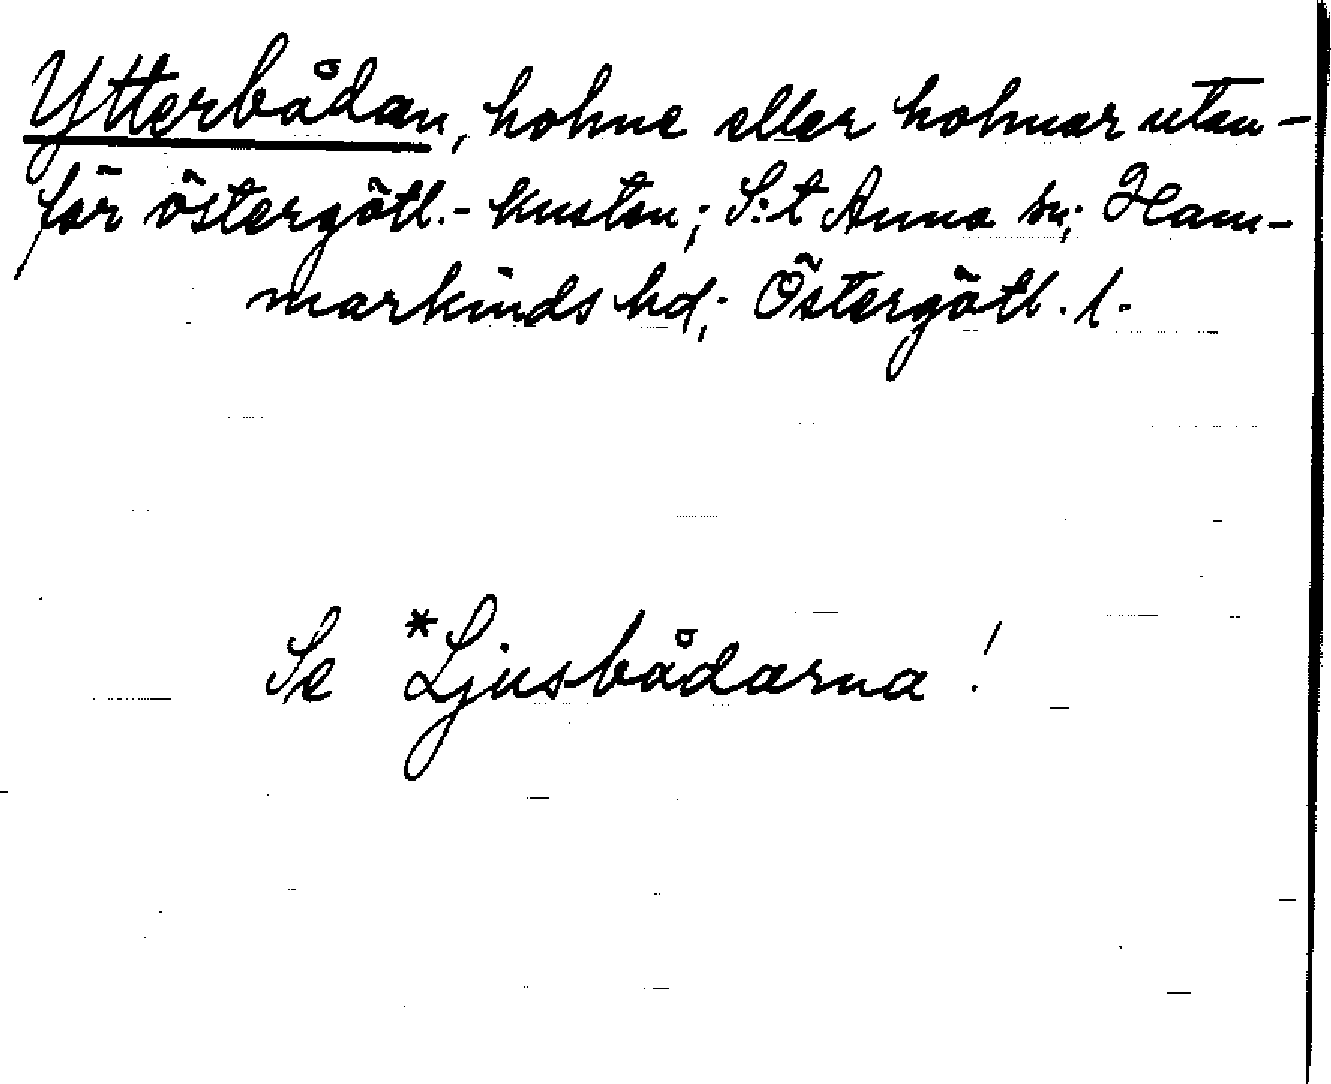 Ytterbådan, holme eller holmar utan-
för östergötl.-kusten; S:t Anna sn; Ham-
markinds hd; Östergötl. l.
Se *Ljusbådarna!